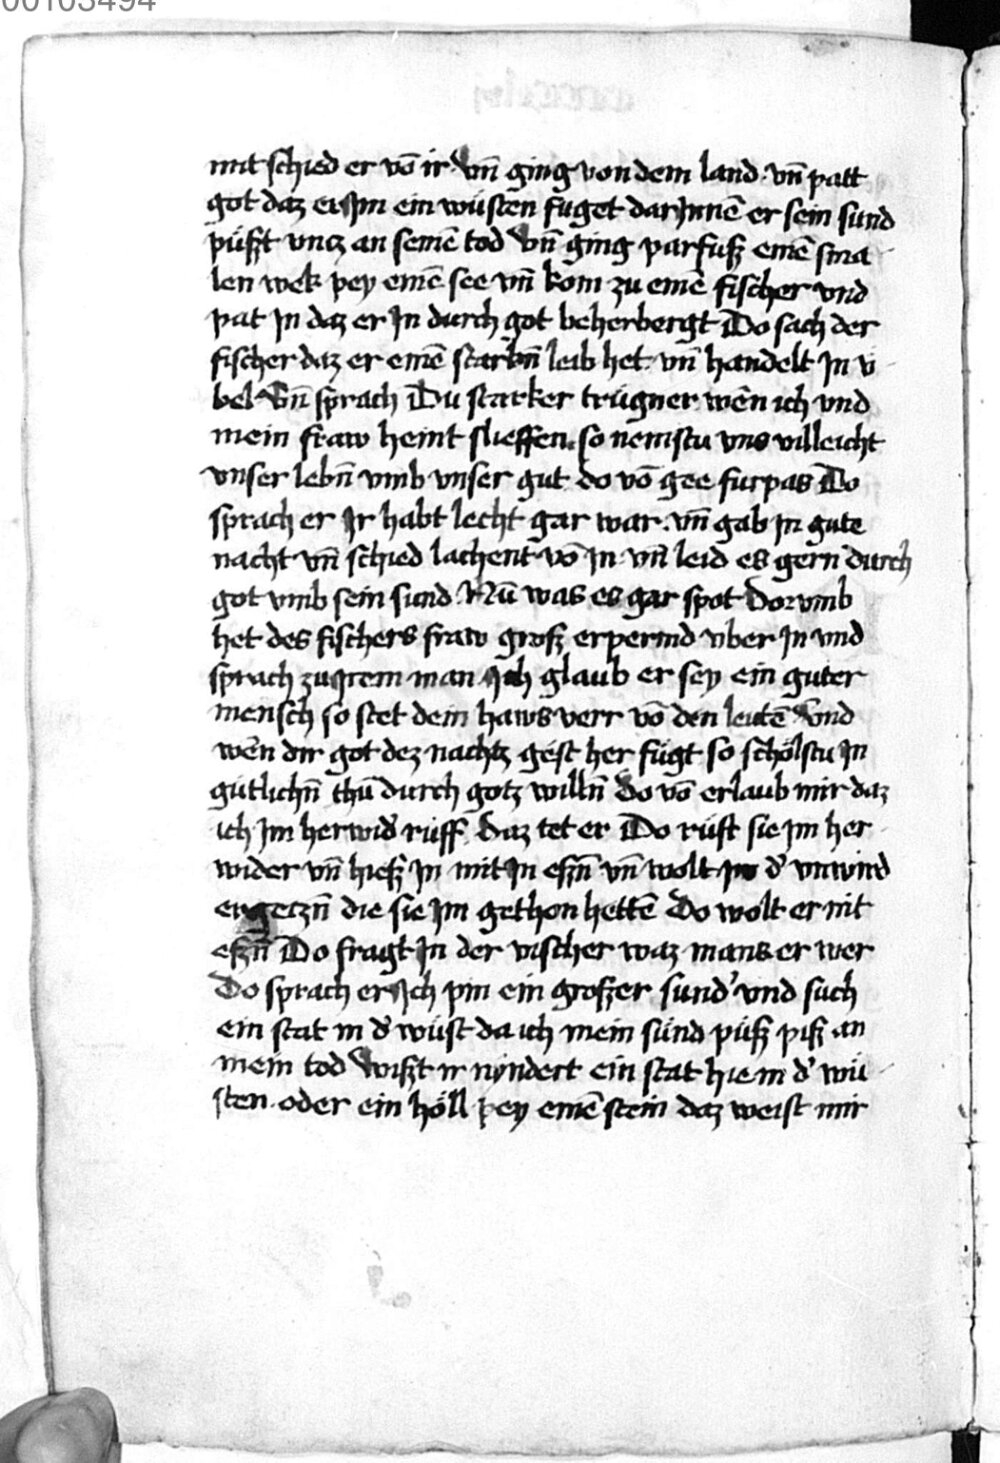 00103494
mit schied er vō ir vn̄ ging von dem land vn̄ patt
got daz er Im ein wüsten fuget dar Jnnē er sein sund
püßt vntz an seinē tod vn̄ ging parfuß einē sma
len wek pey einē see vn̄ kom zu einē fischer vnd
pat Jn daz er Jn durch got beherbergt Do sach der
fischer daz er einē starkn̄ leib het vn̄ handelt Jn v
bel Vn̄ sprach Du starker trügner wēn ich vnd
mein fraw heint slieffen so nemstu vns villeicht
vnser lebn̄ vmb vnser gut do vō gee furpas Do
sprach er Jr habt lecht gar war vn̄ gab Jn gute
nacht vn̄ schied lachent vō Jn vn̄ leid es gern durch
got vmb sein sund Nū was es gar spot Dor vmb
het des fischers fraw groß erpermd vber Jn vnd
sprach zu Jrem man Jch glaub er sey ein guter
mensch so stet dein haws verr vō den leutē vnd
wēn dir got dez nachtz gest her fügt so schölstu Jn
gütlichn̄ thū durch gotz willn̄ Do vō erlaub mir daz
ich Jm herwid' rüff Daz tet er Do rüft sie Jm her
wider vn̄ hieß Jn mit Jn eßn̄ vn̄ wolt Jn d' vnwird
ergeczn̄ die sie Jm gethon hettē Do wolt er nit
eßn̄ Do fragt Jn der vischer waz mans er wer
Do sprach er Jch pin ein großer sund' vnd such
ein stat in d' wüst da ich mein sünd püß piß an
mein tod wißt ir nyndert ein stat hie in d' wü
sten oder ein höll pey einē stein daz weist mir